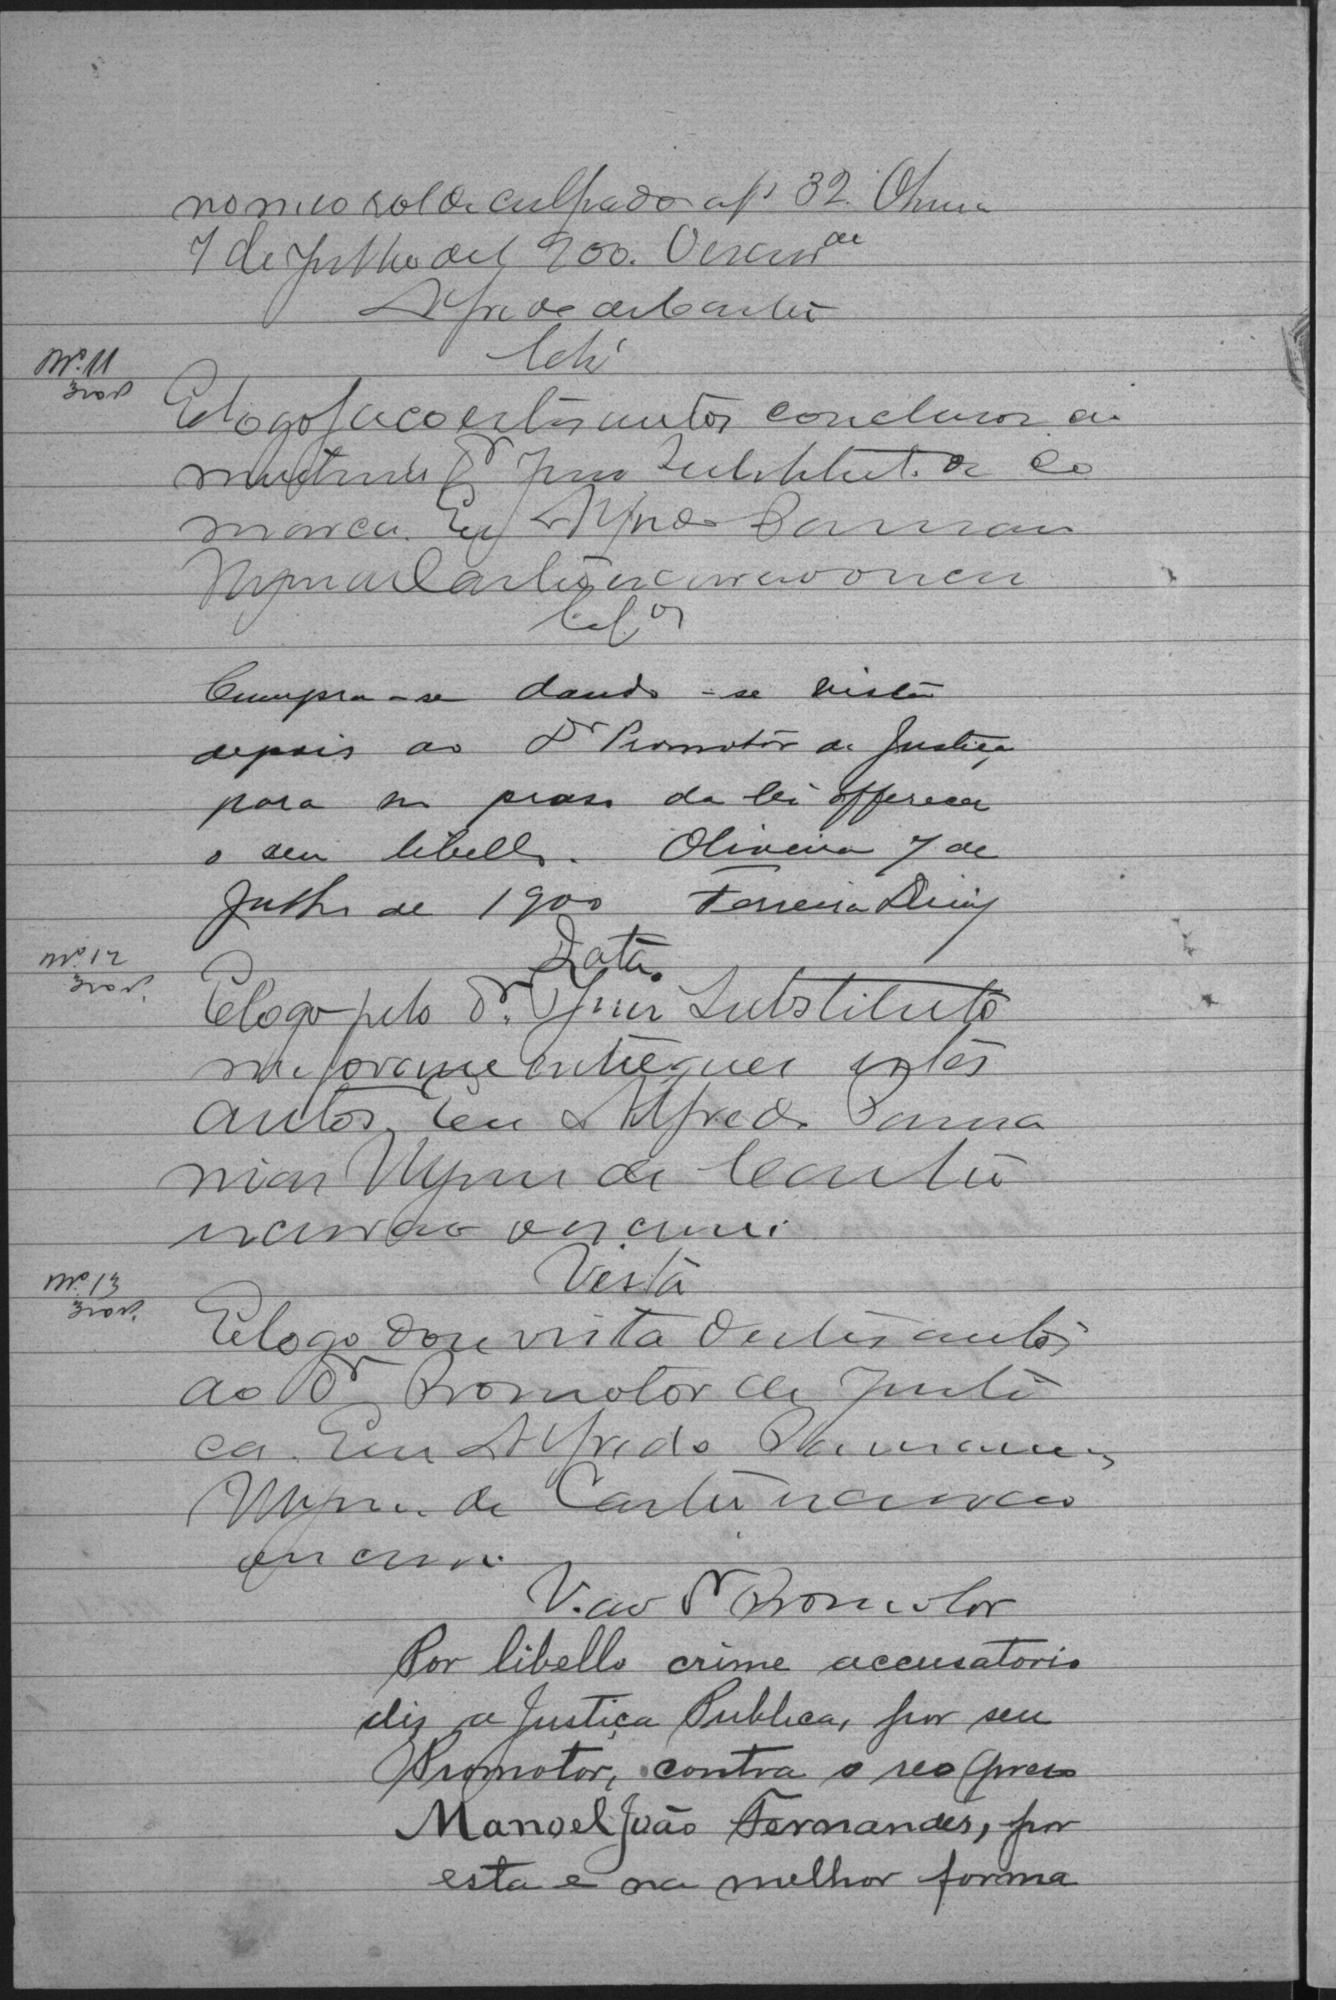 no meu rol de culpados a fs 32. Olivra
7 de Julho de 1900. O escrivão
Alfredo de Castro
Clsº
Nº 11
E logo faço estes autos conclusos ao
meritmo Dr Juiz Substituto da Co
marca. Eu Alfredo Parman
de Castro escrivão o escrevi
Clsos
Cumpra-se dando-se vista
depois ao Dr Promotor de Justiça
para no praso da lei offerecer
o seu libello. Oliveira 7 de
Julho de 1900 Ferreira Diniz
Data.
Nº 12
E logo pelo Dr. Juiz Substituto
me foram entregues estes
autos. Eu Alfredo Parma
nias de Castro
escrivão o escrevi.
Vista
Nº 13
E logo dou vista destes autos
ao Dr Promotor de Justi
ça. Eu Alfredo Parmanias
de Castro escrivão
o escrevi.
V. ao Dr Promotor
Por libello crime accusatorio
diz a Justiça Publica, por seu
Promotor, contra o reo preso
Manoel João Fernandes, por
esta e na melhor forma